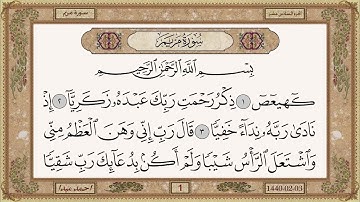 سورة مريم
الجزء السادس عشر
سُورَةُ مَرْيَمَ
بِسْمِ ٱللَّهِ ٱلرَّحْمَٰنِ ٱلرَّحِيمِ
كٓهيعٓصٓ ١ ذِكْرُ رَحْمَتِ رَبِّكَ عَبْدَهُۥ زَكَرِيَّآ ٢ إِذْ
نَادَىٰ رَبَّهُۥ نِدَآءً خَفِيًّا ٣ قَالَ رَبِّ إِنِّى وَهَنَ ٱلْعَظْمُ مِنِّى
وَٱشْتَعَلَ ٱلرَّأْسُ شَيْبًا وَلَمْ أَكُنۢ بِدُعَآئِكَ رَبِّ شَقِيًّا
1
1440-02-03